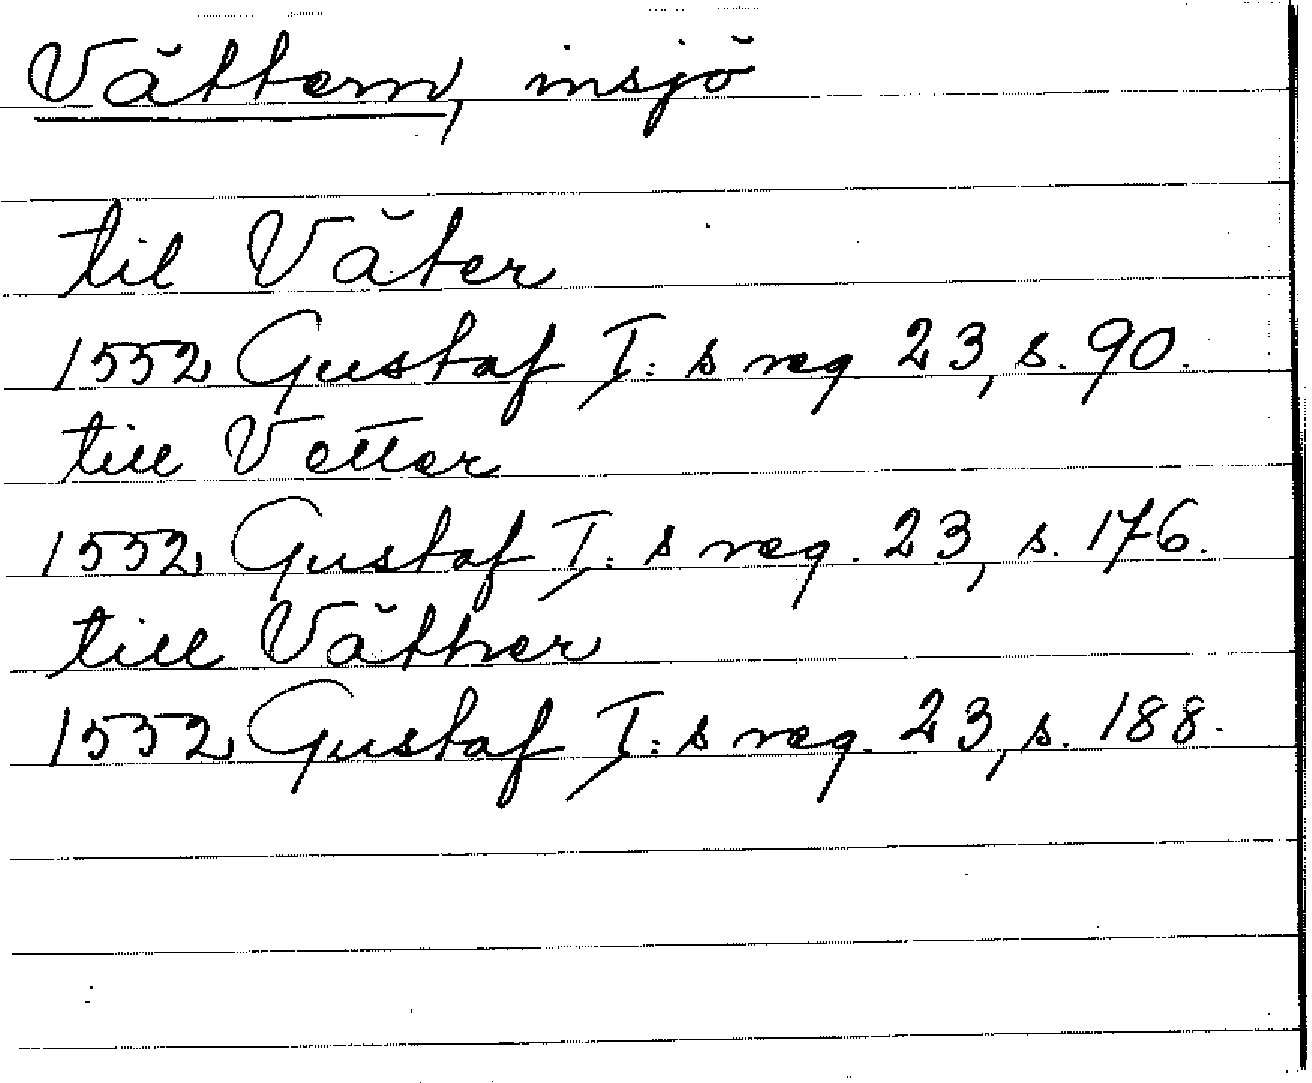 Vättern, insjö
til Väter
1552 Gustaf I:s reg 23, s. 90.
till Vetter
1552 Gustaf I:s reg. 23, s. 176.
till Vätther
1552 Gustaf I:s reg. 23, s. 188.